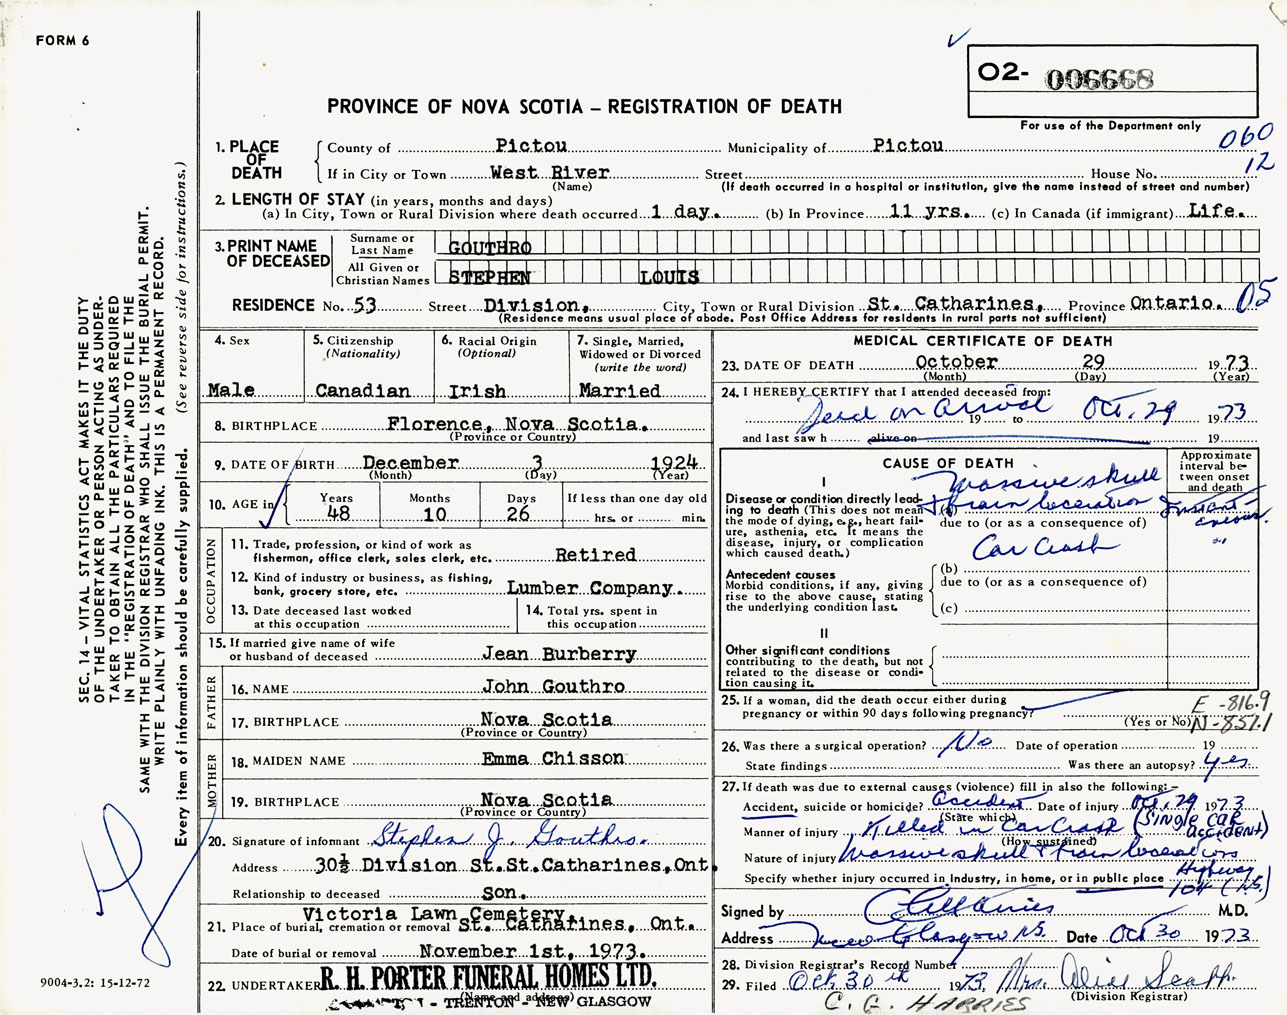 FORM 6
O2- 006668
PROVINCE OF NOVA SCOTIA – REGISTRATION OF DEATH
For use of the Department only
060
12
1. PLACE OF DEATH
County of Pictou Municipality of Pictou
If in City or Town West River Street House No.
(Name) (If death occurred in a hospital or institution, give the name instead of street and number)
2. LENGTH OF STAY (in years, months and days)
(a) In City, Town or Rural Division where death occurred 1 day. (b) In Province 11 yrs. (c) In Canada (if immigrant) Life.
3. PRINT NAME OF DECEASED
Surname or Last Name GOUTHRO
All Given or Christian Names STEPHEN LOUIS
RESIDENCE No. 53 Street Division, City, Town or Rural Division St. Catharines, Province Ontario. 05
(Residence means usual place of abode. Post Office Address for residents in rural parts not sufficient)
4. Sex
Male
5. Citizenship (Nationality)
Canadian
6. Racial Origin (Optional)
Irish
7. Single, Married, Widowed or Divorced (write the word)
Married
8. BIRTHPLACE Florence, Nova Scotia.
(Province or Country)
9. DATE OF BIRTH December 3 1924
(Month) (Day) (Year)
10. AGE in Years 48 Months 10 Days 26 If less than one day old
hrs. or min.
OCCUPATION
11. Trade, profession, or kind of work as fisherman, office clerk, sales clerk, etc. Retired
12. Kind of industry or business, as fishing, bank, grocery store, etc. Lumber Company.
13. Date deceased last worked at this occupation
14. Total yrs. spent in this occupation
15. If married give name of wife or husband of deceased Jean Burberry
FATHER
16. NAME John Gouthro
17. BIRTHPLACE Nova Scotia
(Province or Country)
MOTHER
18. MAIDEN NAME Emma Chisson
19. BIRTHPLACE Nova Scotia
(Province or Country)
20. Signature of informant Stephen J. Gouthro.
Address 30½ Division St. St. Catharines, Ont.
Relationship to deceased Son.
Victoria Lawn Cemetery,
21. Place of burial, cremation or removal St. Catharines, Ont.
Date of burial or removal November 1st, 1973.
22. UNDERTAKER R. H. PORTER FUNERAL HOMES LTD.
(Name and address)
- TRENTON - NEW GLASGOW
MEDICAL CERTIFICATE OF DEATH
23. DATE OF DEATH October 29 1973
(Month) (Day) (Year)
24. I HEREBY CERTIFY that I attended deceased from:
Dead on Arrival 19 to Oct. 29 1973
and last saw h alive on 19
CAUSE OF DEATH
Approximate interval between onset and death
I
Disease or condition directly leading to death (This does not mean the mode of dying, e.g., heart failure, asthenia, etc. It means the disease, injury, or complication which caused death.)
Massive skull
(a) & brain laceration
due to (or as a consequence of)
Car Crash
Antecedent causes
Morbid conditions, if any, giving rise to the above cause, stating the underlying condition last.
(b)
due to (or as a consequence of)
(c)
II
Other significant conditions
contributing to the death, but not related to the disease or condition causing it.
25. If a woman, did the death occur either during pregnancy or within 90 days following pregnancy?
(Yes or No)
E -816.9
N-851.1
26. Was there a surgical operation? No Date of operation 19
State findings Was there an autopsy? yes
27. If death was due to external causes (violence) fill in also the following:–
Accident, suicide or homicide? accident Date of injury Oct. 29 1973
(State which)
Manner of injury Killed in Car Crash (SINGLE CAR ACCIDENT)
(How sustained)
Nature of injury Massive skull & brain lacerations
Specify whether injury occurred in Industry, in home, or in public place Highway 104 (N.S.)
Signed by M.D.
Address New Glasgow NS. Date Oct 30 1973
28. Division Registrar's Record Number
29. Filed Oct 30th 1973, Mrs. Alice Scott
(Division Registrar)
C. G. HARRIES
SEC. 14 – VITAL STATISTICS ACT MAKES IT THE DUTY
OF THE UNDERTAKER OR PERSON ACTING AS UNDER-
TAKER TO OBTAIN ALL THE PARTICULARS REQUIRED
IN THE "REGISTRATION OF DEATH" AND TO FILE THE
SAME WITH THE DIVISION REGISTRAR WHO SHALL ISSUE THE BURIAL PERMIT.
WRITE PLAINLY WITH UNFADING INK. THIS IS A PERMANENT RECORD.
Every item of information should be carefully supplied. (See reverse side for instructions.)
9004-3.2: 15-12-72